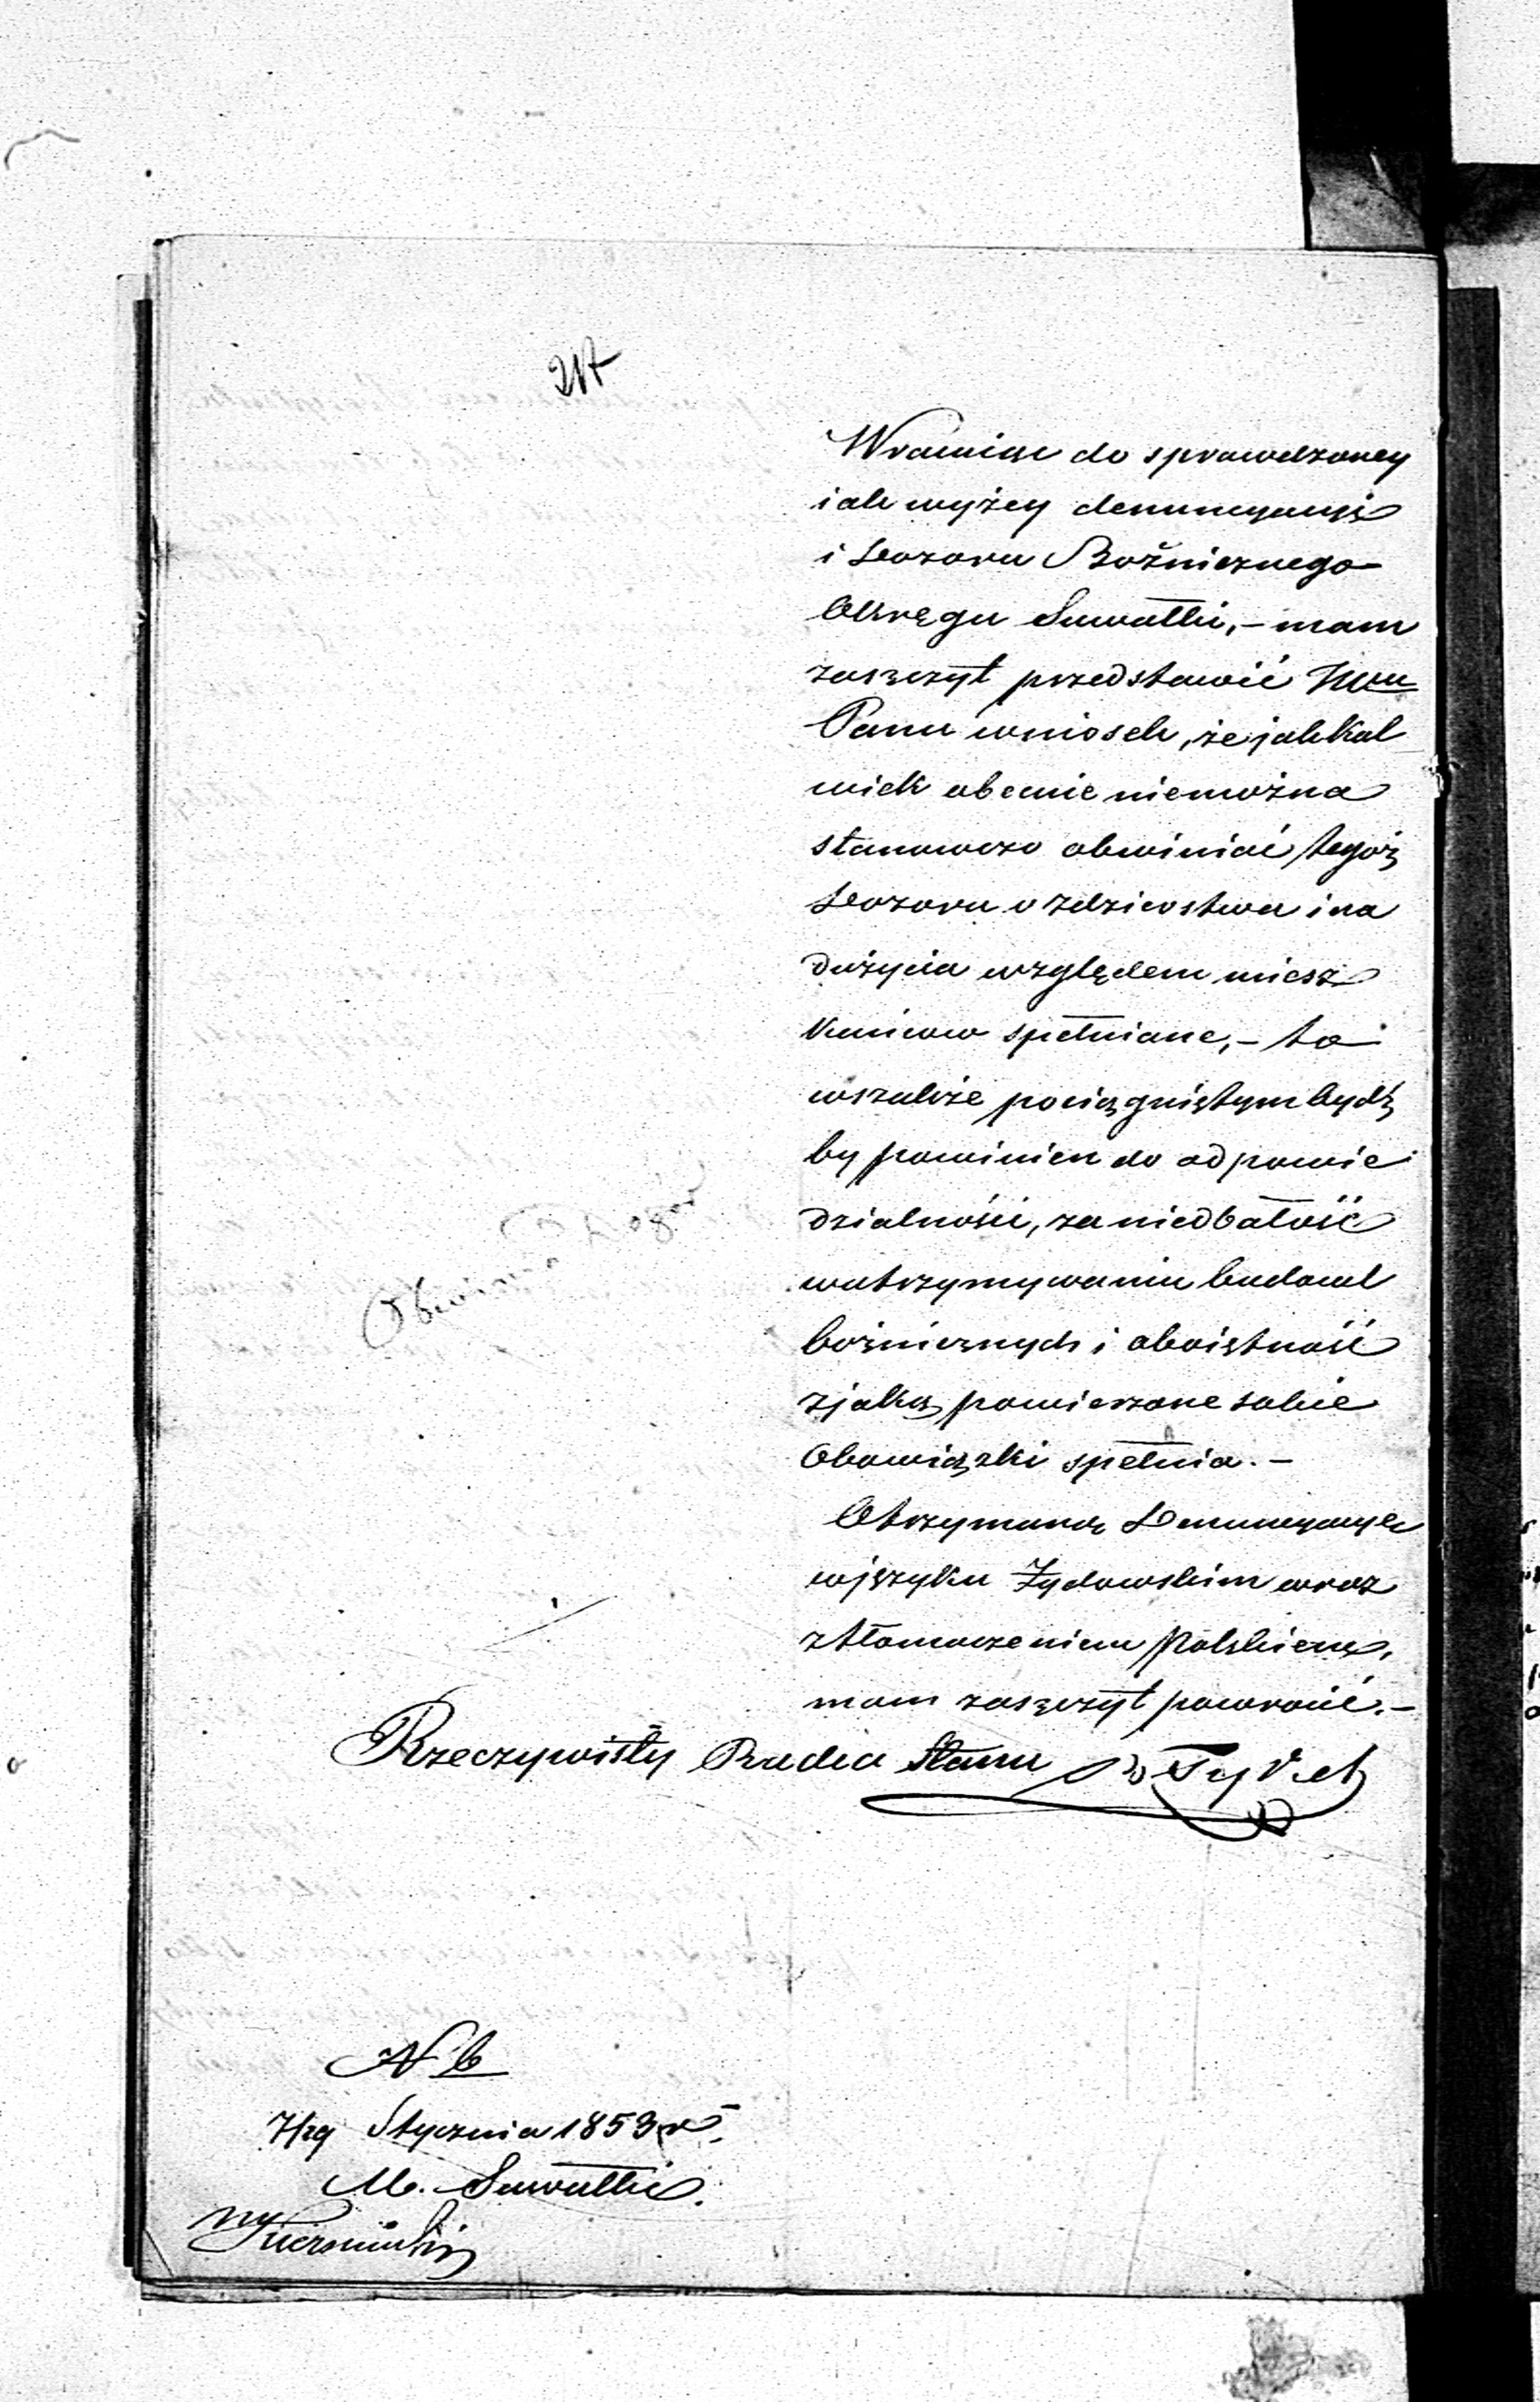 217
W ramiąc do sprawdzoney
iak wyżey denuncyacyi
i Dozoru Bożnicznego
Okręgu Suwałki, – mam
zaszczyt przedstawić JWu
Panu wniosek, że jakkol
wiek obecnie niemożna
stanowczo obwiniać tegoż
Dozoru o zdzierstwa i na
dużycia względem miesz
kańców spełniane, – to
wszakże pociągniętym bydź
by powinien do odpowie
dzialności, za niedbałość
w utrzymywaniu budowl
bożnicznych i oboiętność
z jaką powierzone sobie
Obowiązki spełnia. –
Otrzymaną Denuncyacyę
w języku Żydowskim wraz
z tłomaczeniem Polskiem,
mam zaszczyt powrócić. –
Rzeczywisty Radca Stanu
N 6
7/19 Stycznia 1853 r.
M. Suwałki.